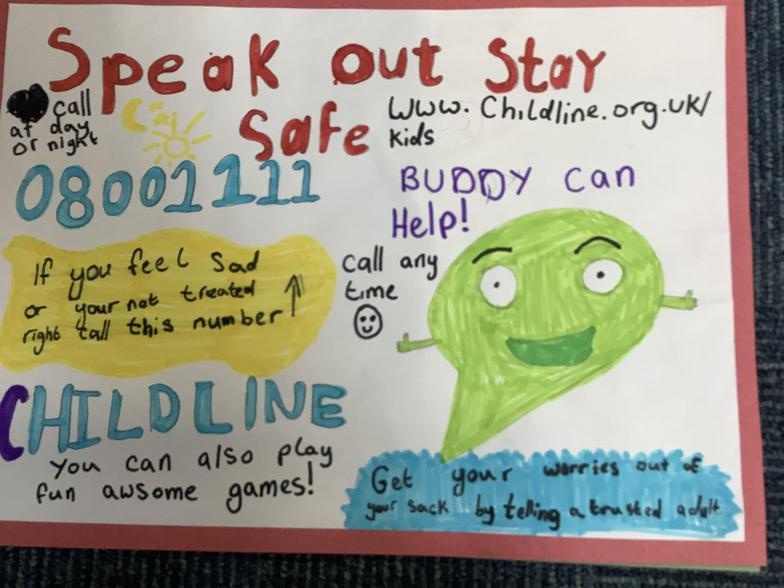 Speak out Stay
Safe
call
at day
or night
www.Childline.org.uk/
kids
08001111
BUDDY can
Help!
If you feel Sad
or your not treated
right call this number
call any
time
CHILDLINE
You can also play
fun awsome games!
Get your worries out of
your sack by telling a trusted adult